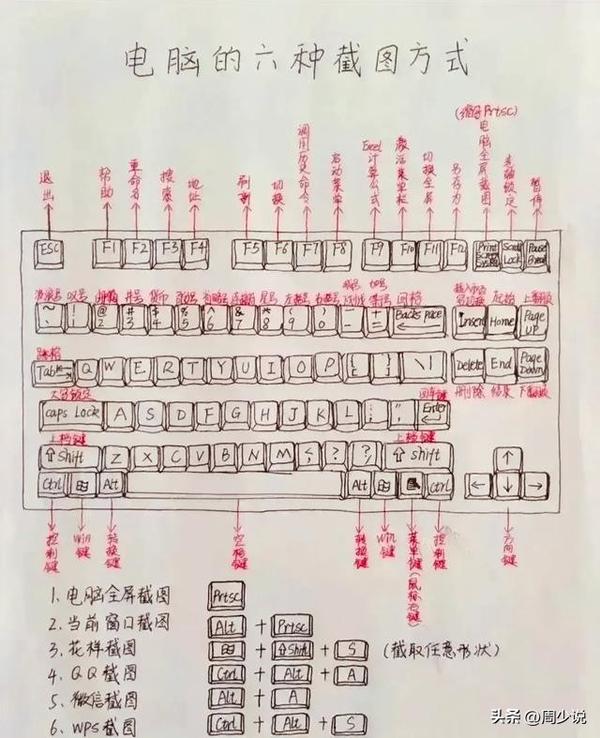 电脑的六种截图方式
退出 帮助 重命名 搜索 地址 刷新 切换 调用历史命令 启动菜单 Excel计算公式 激活菜单栏 切换全屏 另存为 (缩写Prtsc) 电脑全屏截图 暂停
ESC F1 F2 F3 F4 F5 F6 F7 F8 F9 F10 F11 F12 Print Screen SysRq Scroll Lock Pause Break
叹号 井号 货币 尾号 回格 起始
~ ` ! 1 @ 2 # 3 $ 4 % 5 ^ 6 & 7 * 8 ( 9 ) 0 — - + = Backspace Insert Home Page UP
Tab Q W E R T Y U I O P { [ } ] \ | Delete End Page Down
大写锁定 回车键 删除 结束 下翻页
Caps Lock A S D F G H J K L : ; " , Enter
上档键 上档键
⇧Shift Z X C V B N M ⇧Shift ↑
Ctrl Alt Alt Ctrl ← ↓ →
控制键 Win键 转换键 空格键 转换键 Win键 菜单键(鼠标右键) 控制键 方向键
1、电脑全屏截图 Prtsc
2、当前窗口截图 Alt + Prtsc
3、花样截图 + ⇧Shift + S (截取任意形状)
4、QQ截图 Ctrl + Alt + A
5、微信截图 Alt + A
6、WPS截图 Ctrl + Alt + S
头条 @周少说